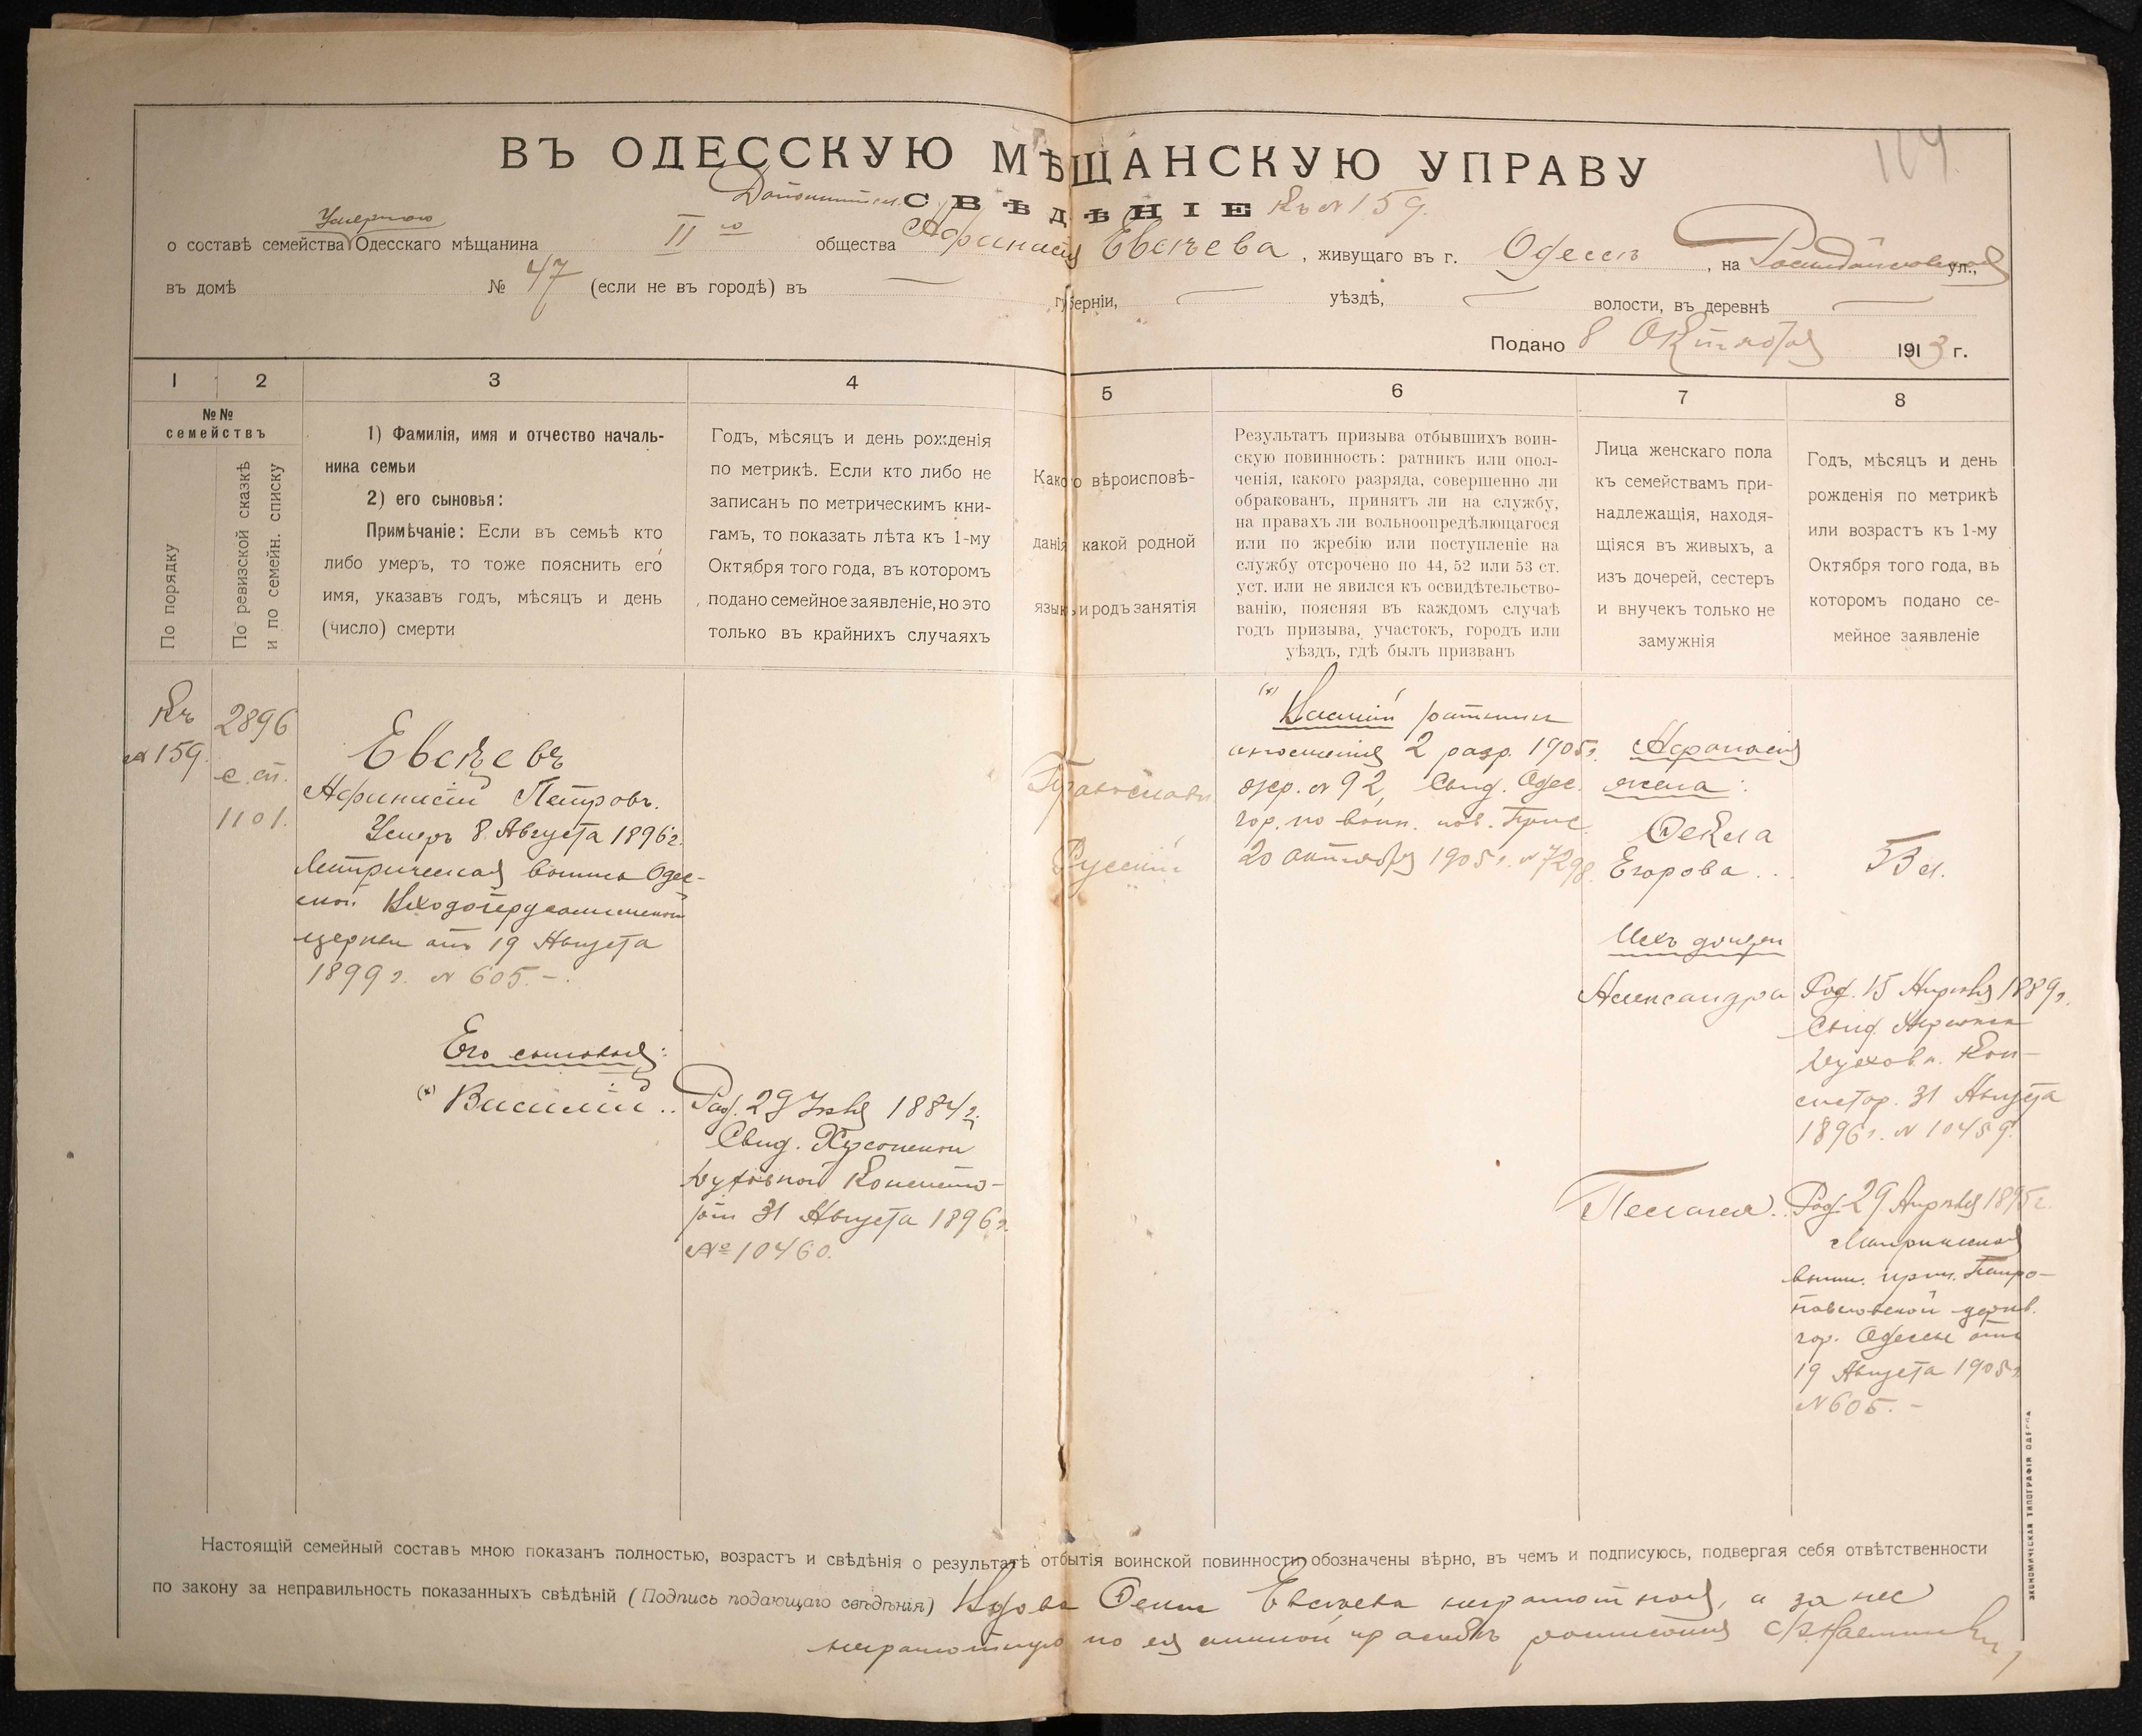 ВЪ ОДЕССКУЮ МѢЩАНСКУЮ УПРАВУ
104.
СВѢДѢНІЕ Къ № 159.
Умершаго
о составѣ семейства Одесскаго мѣщанина II го общества Афанасія Евсѣева, живущаго въ г. Одессѣ, на ул.,
въ домѣ № 47 (если не въ городѣ) въ — губерніи, — уѣздѣ, — волости, въ деревнѣ —
Подано 8 Октября 1913 г.
1 2 3 4 5 6 7 8
№№ семействъ
По порядку
По ревизской сказкѣ
и по семейн. списку
1) Фамилія, имя и отчество началь-
ника семьи
2) его сыновья:
Примѣчаніе: Если въ семьѣ кто
либо умеръ, то тоже пояснить его
имя, указавъ годъ, мѣсяцъ и день
(число) смерти
Годъ, мѣсяцъ и день рожденія
по метрикѣ. Если кто либо не
записанъ по метрическимъ кни-
гамъ, то показать лѣта къ 1-му
Октября того года, въ которомъ
подано семейное заявленіе, но это
только въ крайнихъ случаяхъ
Какого вѣроисповѣ-
данія какой родной
языкъ и родъ занятія
Результатъ призыва отбывшихъ воин-
скую повинность: ратникъ или опол-
ченія, какого разряда, совершенно ли
обракованъ, принятъ ли на службу,
на правахъ ли вольноопредѣлющагося
или по жребію или поступленіе на
службу отсрочено по 44, 52 или 53 ст.
уст. или не явился къ освидѣтельство-
ванію, поясняя въ каждомъ случаѣ
годъ призыва, участокъ, городъ или
уѣздъ, гдѣ былъ призванъ
Лица женскаго пола
къ семействамъ при-
надлежащія, находя-
щіяся въ живыхъ, а
изъ дочерей, сестеръ
и внучекъ только не
замужнія
Годъ, мѣсяцъ и день
рожденія по метрикѣ
или возрастъ къ 1-му
Октября того года, въ
которомъ подано се-
мейное заявленіе
Къ
№ 159.
2896
с. сп.
1101.
Евсѣевъ
Афанасій Петровъ.
Умеръ 8 Августа 1896 г.
Метрическая выпись Одес-
ской
церкви отъ 19 Августа
1899 г. № 605. —
Его сыновья:
(х) Василій..
Род. 29 1884 г.
Свид. Херсонской
Духовной Консисто-
ріи 31 Августа 1896 г.
№ 10460.
Православн.
Русскій
(х) Василій ратникъ
ополченія 2 разр. 1905 г.
жер. № 92, Свид. Одес.
гор. по воин. пов. Прис.
20 октября 1905 г. № 7298.
Афанасія
жена:
Фекла
Егорова...
53 л.
Ихъ дочери
Александра
Род. 15 Апрѣля 1889 г.
Свид. Херсонск
Духовн. Кон-
систор. 31 Августа
1896 г. № 10459.
Пелагея..
Род. 29 Апрѣля 1895 г.
Метрическая
выпис. прич. Петро-
павловской церкв.
гор. Одессы отъ
19 Августа 1905 г.
№ 605. —
Настоящій семейный составъ мною показанъ полностью, возрастъ и свѣдѣнія о результатѣ отбытія воинской повинности обозначены вѣрно, въ чемъ и подписуюсь, подвергая себя отвѣтственности
по закону за неправильность показанныхъ свѣдѣній (Подпись подающаго свѣдѣнія) Вдова Фекла Евсѣева неграмотная, а за нее
неграмотную по ея личной просьбѣ росписался
ЭКОНОМИЧЕСКАЯ ТИПОГРАФІЯ ОДЕССА